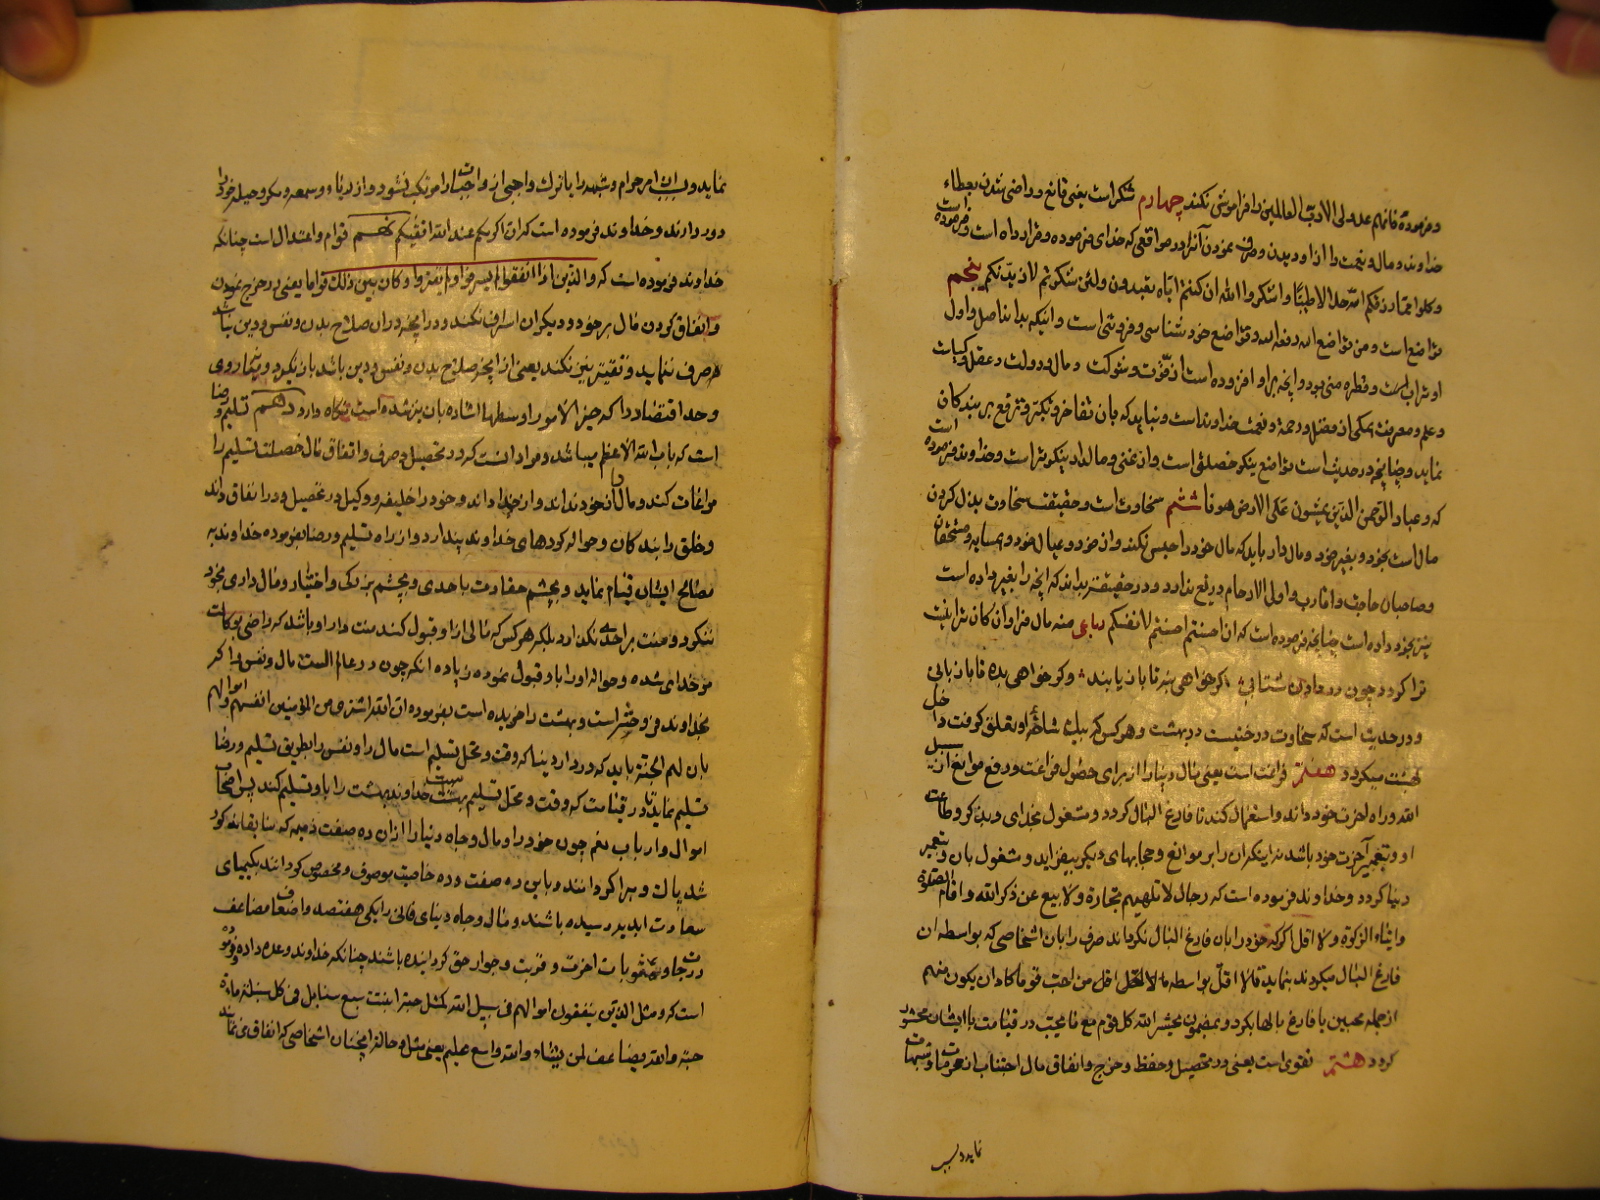 و فرموده فانهم عدو لی الا رب العالمین را فراموش نکند چهارم شکر است یعنی قانع و راضی شدن بعطاء
خداوند و مال و نعمت را از او دیدن و صرف نمودن آنرا در مواقعی که خدای فرموده و قرار داده است و فرموده است
و کلوا مما رزقکم الله حلالا طیبا و اشکروا الله ان کنتم ایاه تعبدون و لئن شکرتم لازیدنکم پنجم
تواضع است و من تواضع لله رفعه الله و تواضع خود شناسی و فروتنی است و اینکه بداند اصل و اول
او تراب است و قطره منی بود و آنچه بر او افزوده است از قوت و شوکت و مال و دولت و عقل و کیاست
و علم و معرفت همگی از فضل و رحمة و نعمت خداوند است و نباید که بان تفاخر و تکبر و ترفع بر بندکان
نماید و چنانچه در حدیث است تواضع نیکو خصلتی است و از غنی و مالدار نیکوتر است و خداوند فرموده است
که و عباد الرحمن الذین یمشون علی الارض هونا ششم سخاوت است و حقیقت سخاوت بذل کردن
مال است بخود و بغیر خود و مال دار باید که مال خود را حبس نکند و از خود و عیال خود و همسایه و مستحقان
و صاحبان حاجت و اقارب و اولی الارحام دریغ ندارد و در حقیقت بداند که آنچه را بغیر داده است
نیز بخود داده است چنانچه فرموده است که ان احسنتم احسنتم لانفسکم رباعی منه مال فراوان کان ترا نیست
ترا کردد چون در دادن شتابی اگر خواهی بنه تا باز یابند و کر خواهی بده تا باز یابی
و در حدیث است که سخاوت درختیست در بهشت و هر کس که بیک شاخه او تعلق کرفت داخل
بهشت میکردد هفتم فراغت است یعنی مال دنیا را از برای حصول فراغت و رفع موانع از سبیل
الله و راه آخرت خود داند و استعمال کند تا فارغ البال کردد و مشغول بخدای و بذکر و طاعت
او و تعمیر آخرت خود باشد نه اینکه آن را بر موانع و حجابهای دیکر بیفزاید و مشغول بان و تعمیر
دنیا کردد و خداوند فرموده است که رجال لا تلهیهم تجارة و لا بیع عن ذکر الله و اقام الصلوة
و ایتاء الزکوة و لا اقل اکر که خود را بان فارغ البال نکرداند صرف را بان اشخاصی که بواسطه ان
فارغ البال میکردند بنماید فلا اقل بواسطه مالا اقل من احب قوما کان یکون منهم
از جمله محبین یا فارغ بالها بکردد و بمضمون یحشر الله کل قوم مع ما یحب در قیامت با ایشان محشور
کردد هشتم تقوی است یعنی در تحصیل و حفظ و خرج و انفاق مال اجتناب از محرمات و شبهات
نماید و بسبب
نماید و بسبب ان امر حرام و شبهه را یا ترک واجبی از واجبات را مرتکب نشود و از ریاء و سمعه و مکر و حیله خود را
دور دارند و خداوند فرموده است که ان اکرمکم عند الله اتقیکم نهم قوام و اعتدال است چنانکه
خداوند فرموده است که والذین اذا انفقوا لم یسرفوا و لم یقتروا و کان بین ذلک قواما یعنی در خرج نمودن
و انفاق کردن مال بر خود و دیکران اسراف نکند و در آنچه در ان صلاح بدن و نفس و دین نباشد
صرف ننماید و تقیتر نیز نکند یعنی از آنچه صلاح بدن و نفس و دین باشد باز نکیرد و میانه روی
و حد اقتصاد را که خیر الامور اوسطها اشاره بان نیز شده است نکاه دارد دهم تسلیم و رضا
است که باب الله الاعظم میباشد و مراد آنست که در تحصیل و صرف و انفاق مال خصلت تسلیم را
مراعات کند و مال را از خود نداند و از خدا داند و خود را خلیفه و وکیل در تحصیل و در انفاق داند
و خلق را بندکان و حواله کردهای خداوند پندارد و از راه تسلیم و رضا بفرموده خداوند به
مصالح ایشان قیام نماید و بچشم حقارت باحدی و بچشم بزرکی و اختیار و مال داری بخود
ننکرد و منت بر احدی نکذارد بلکه هر کس که مالی از او قبول کند منت دار او باشد که راضی بوکالت
من خدای شده و حواله او را باو قبول نموده زیاده انکه چون در عالم الست مال و نفس را که
بخداوند فروخته است و بهشت را خریده است بفرموده ان الله اشتری من المؤمنین انفسهم و اموالهم
بان لهم الجنة باید که در دار دنیا که وقت و محل تسلیم است مال را و نفس را بطریق تسلیم و رضا
تسلیم نماید تا در قیامت که وقت و محل تسلیم بهشت است خداوند بهشت را باو تسلیم کند پس اصحاب
اموال و ارباب نعم چون خود را و مال و جاه دنیا را از ان ده صفت ذمیمه که سابقا مذکور
شد پاک و مبرا کردانند و باین ده صفت و ده خاصیت موصوف و مخصوص کردانند بکیمیای
سعادت ابدیه رسیده باشند و مال و جاه دنیای فانی را یکی هفتصد و اضعاف مضاعف
درجات و مثوبات اخرت و قربت و جوار حق کردانیده باشند چنانکه خداوند وعده داده و فرموده
است که و مثل الذین ینفقون اموالهم فی سبیل الله کمثل حبة انبتت سبع سنابل فی کل سنبلة مائة
حبة و الله یضاعف لمن یشاء و الله واسع علیم یعنی مثل و حالت انچنان اشخاصی که انفاق می نمایند